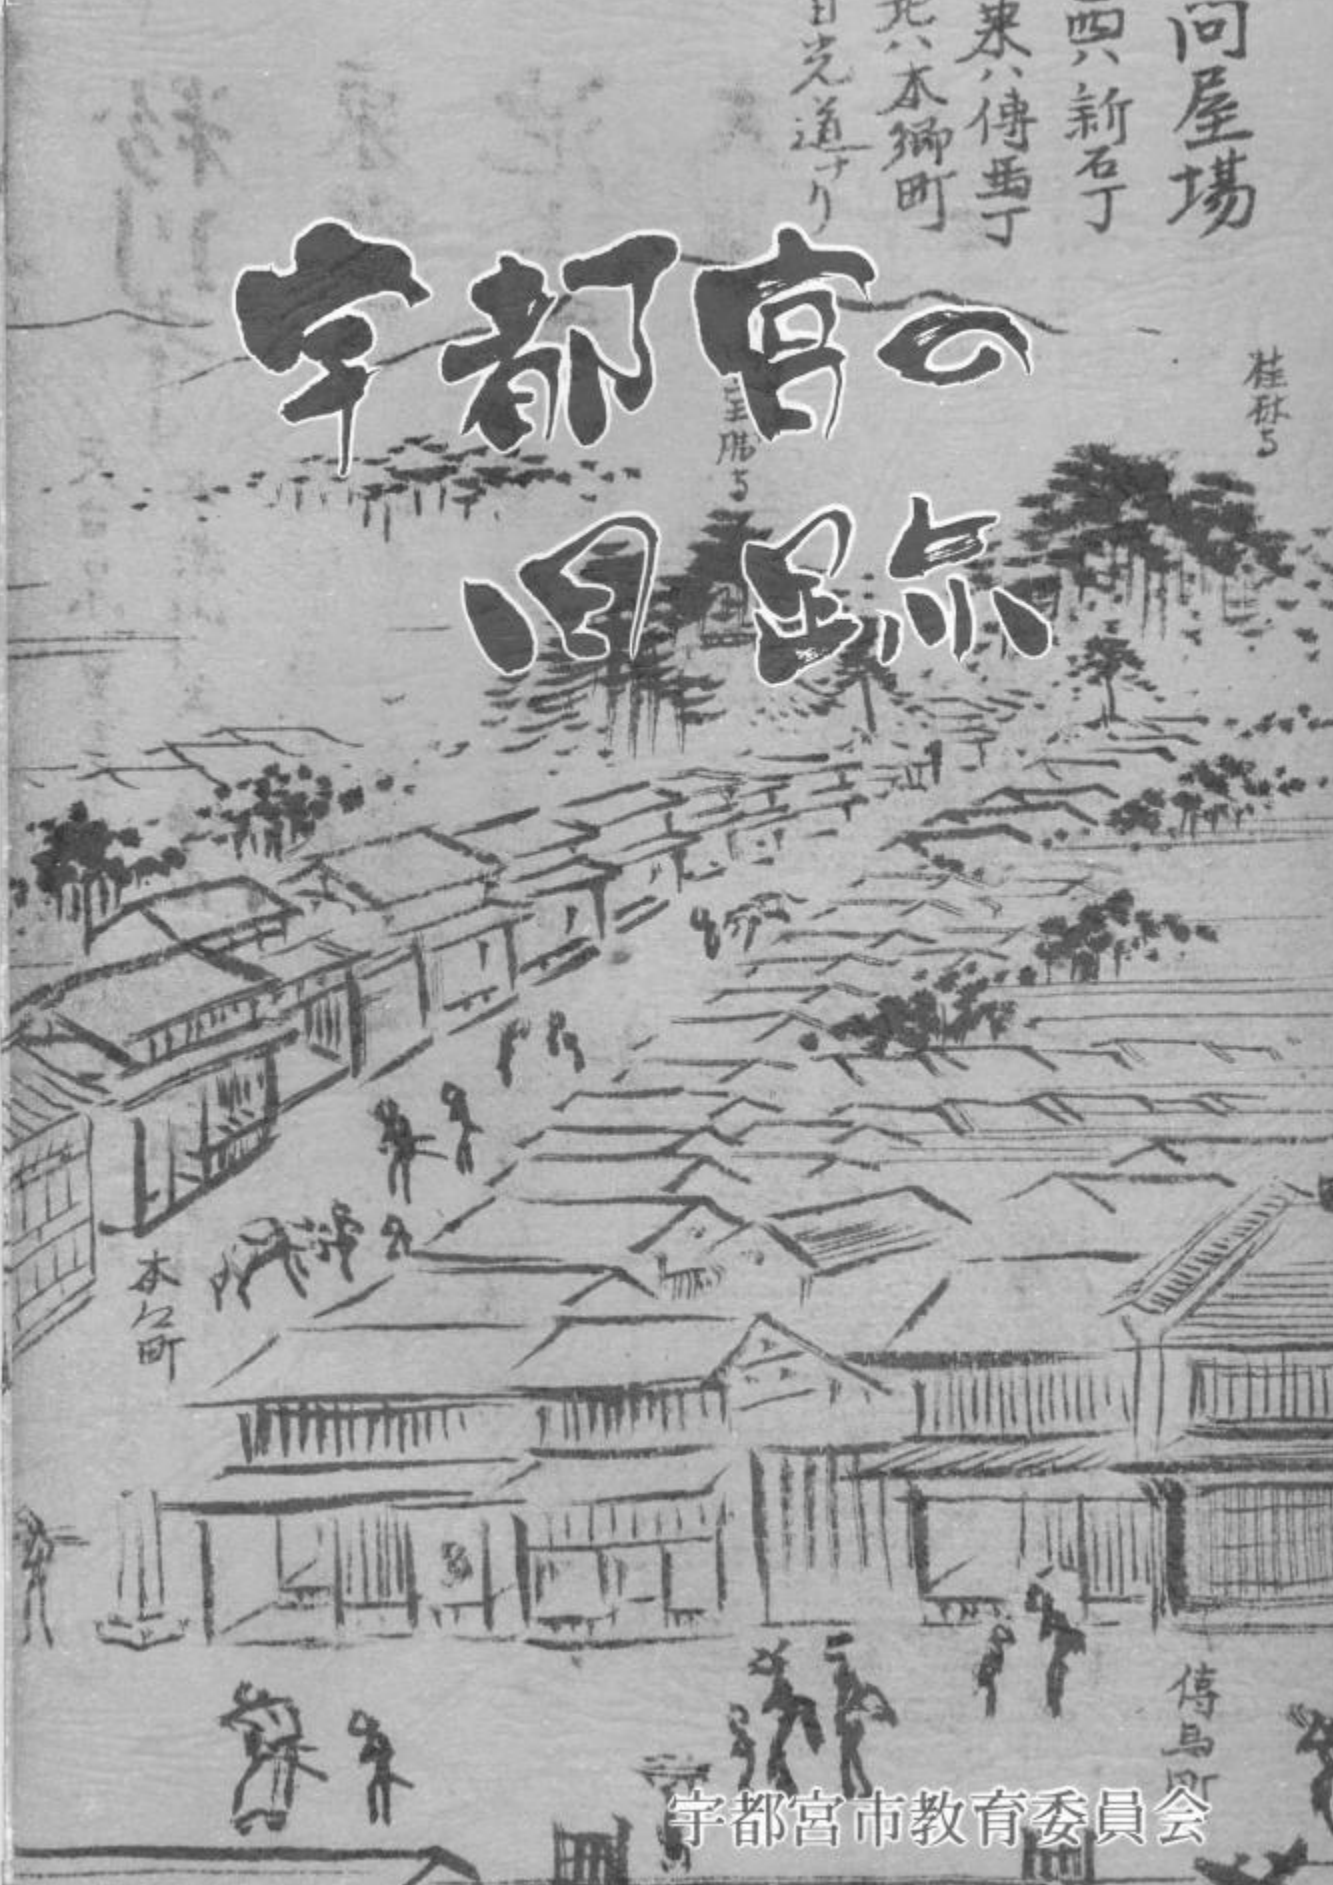 問屋場
西ハ新石丁
東ハ傳馬丁
北ハ本郷町
日光道ナリ
宇都宮の
旧跡
桂林寺
本郷町
傳馬町
宇都宮市教育委員会